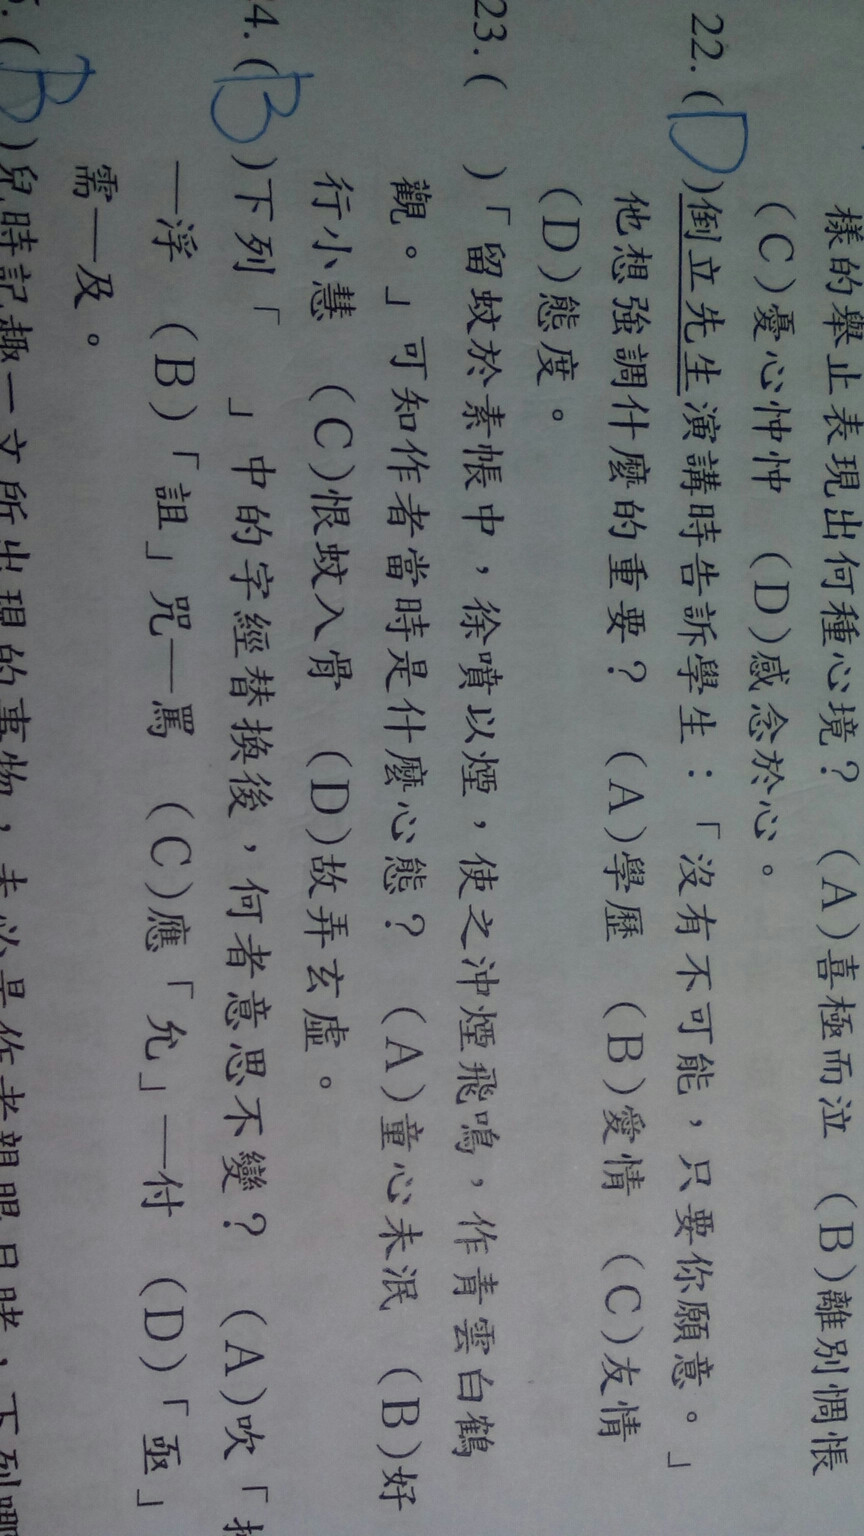 樣的舉止表現出何種心境？ (A)喜極而泣 (B)離別惆悵
(C)憂心忡忡 (D)感念於心。
22.(D)倒立先生演講時告訴學生：「沒有不可能，只要你願意。」
他想強調什麼的重要？ (A)學歷 (B)愛情 (C)友情
(D)態度。
23.( )「留蚊於素帳中，徐噴以煙，使之沖煙飛鳴，作青雲白鶴
觀。」可知作者當時是什麼心態？ (A)童心未泯 (B)好
行小慧 (C)恨蚊入骨 (D)故弄玄虛。
4.(B)下列「 」中的字經替換後，何者意思不變？ (A)吹「
—浮 (B)「詛」咒—罵 (C)應「允」—付 (D)「亟」
需—及。
.(B)兒時記趣一文所出現的事物，未必是作者親眼目睹，下列哪